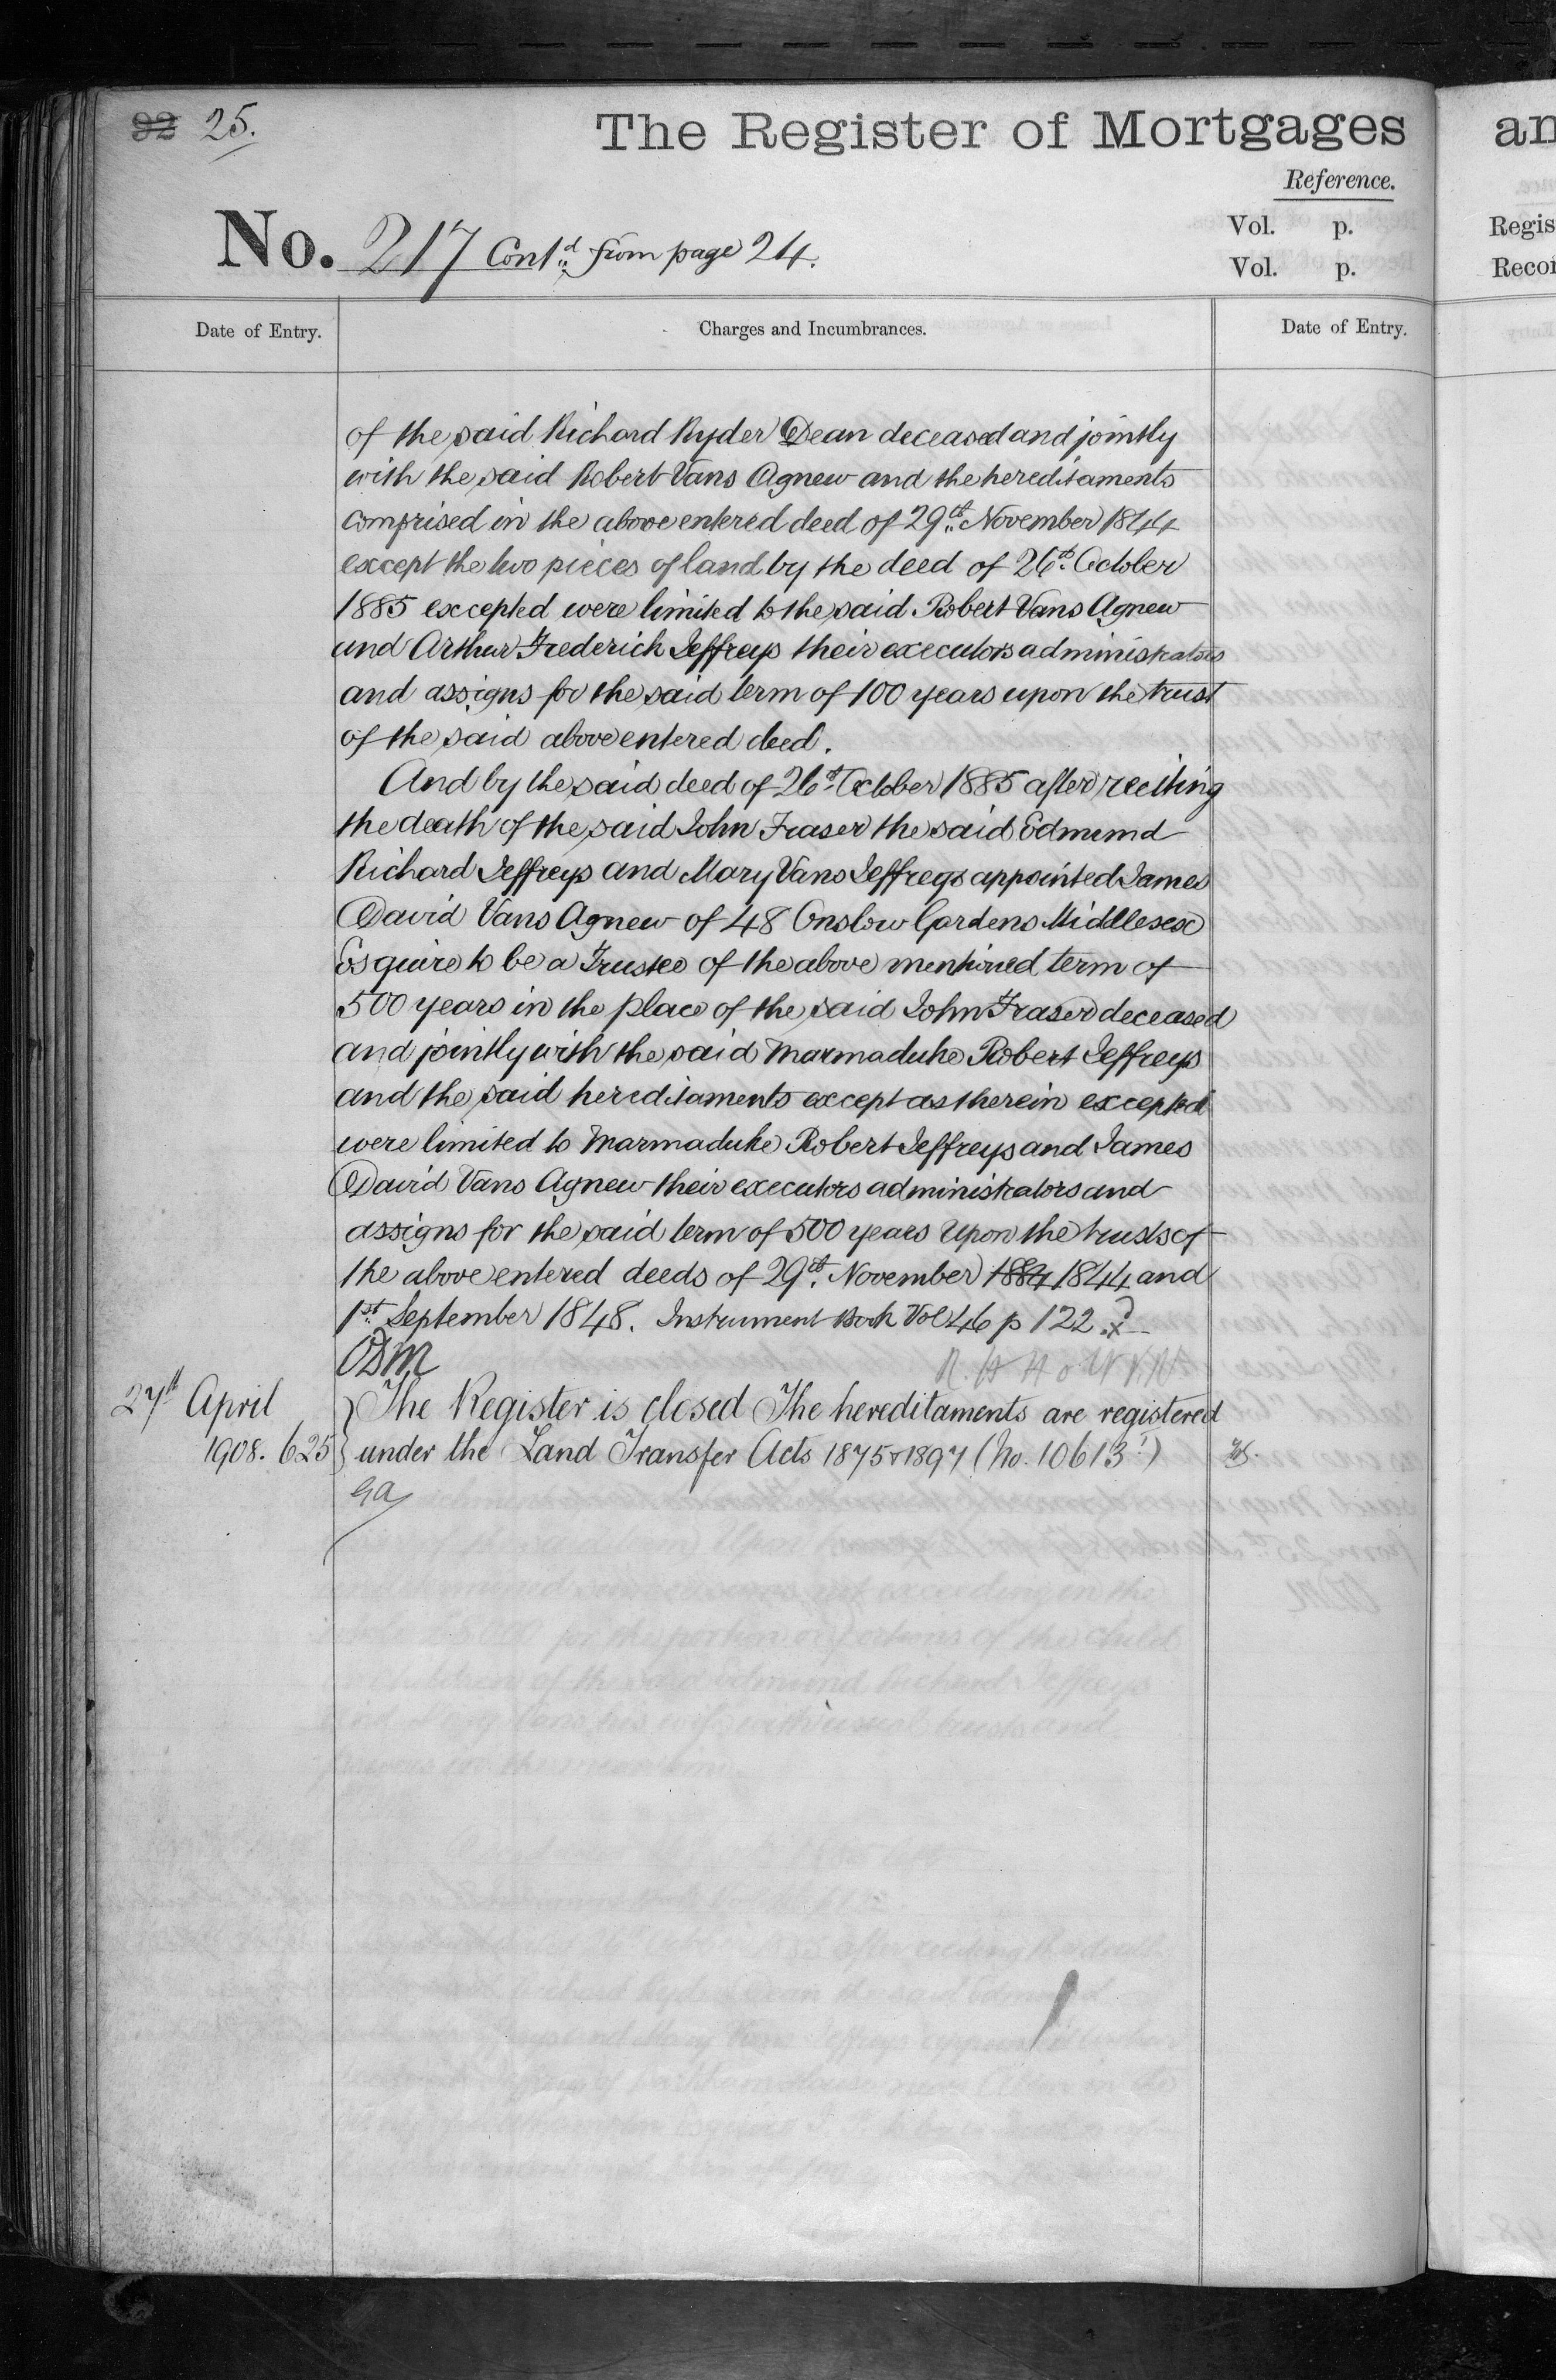 92 25.
The Register of Mortgages
Reference.
No. 217 Contd from page 24.
Vol. p.
Vol. p.
Date of Entry.
Charges and Incumbrances.
Date of Entry.
of the said Richard Ryder Dean deceased and jointly
with the said Robert Vans Agnew and the hereditaments
comprised in the above entered deed of 29th November 1844
except the two pieces of land by the deed of 26th October
1885 excepted were limited to the said Robert Vans Agnew
and Arthur Frederick Jeffreys their executors administrators
and assigns for the said term of 100 years upon the trust
of the said above entered deed.
And by the said deed of 26th October 1885 after reciting
the death of the said John Fraser the said Edmund
Richard Jeffreys and Mary Vans Jeffreys appointed James
David Vans Agnew of 48 Onslow Gardens Middlesex
Esquire to be a Trustee of the above mentioned term of
500 years in the place of the said John Fraser deceased
and jointly with the said Marmaduke Robert Jeffreys
and the said hereditaments except as therein excepted
were limited to Marmaduke Robert Jeffreys and James
David Vans Agnew their executors administrators and
assigns for the said term of 500 years Upon the trusts of
the above entered deeds of 29th November 1884 1844 and
1st September 1848. Instrument Book Vol 46 p 122.
27th April
The Register is closed The hereditaments are registered
1908. 625
under the Land Transfer Acts 1875 & 1897 (No. 10613!)
an
Regis
Recor